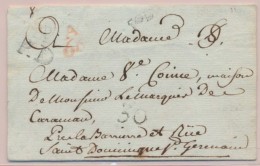 Madame
Madame Ve. Coime, maison
de Monsieur Le Marquis de
Caraman,
50
Pres la Barriere et Rue
Saint Dominique f. St. Germain